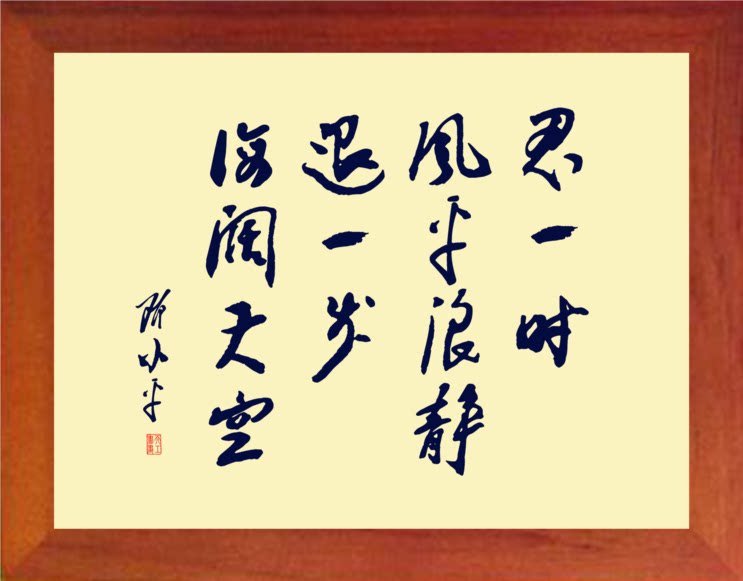 忍一时
风平浪静
退一步
海阔天空
小平